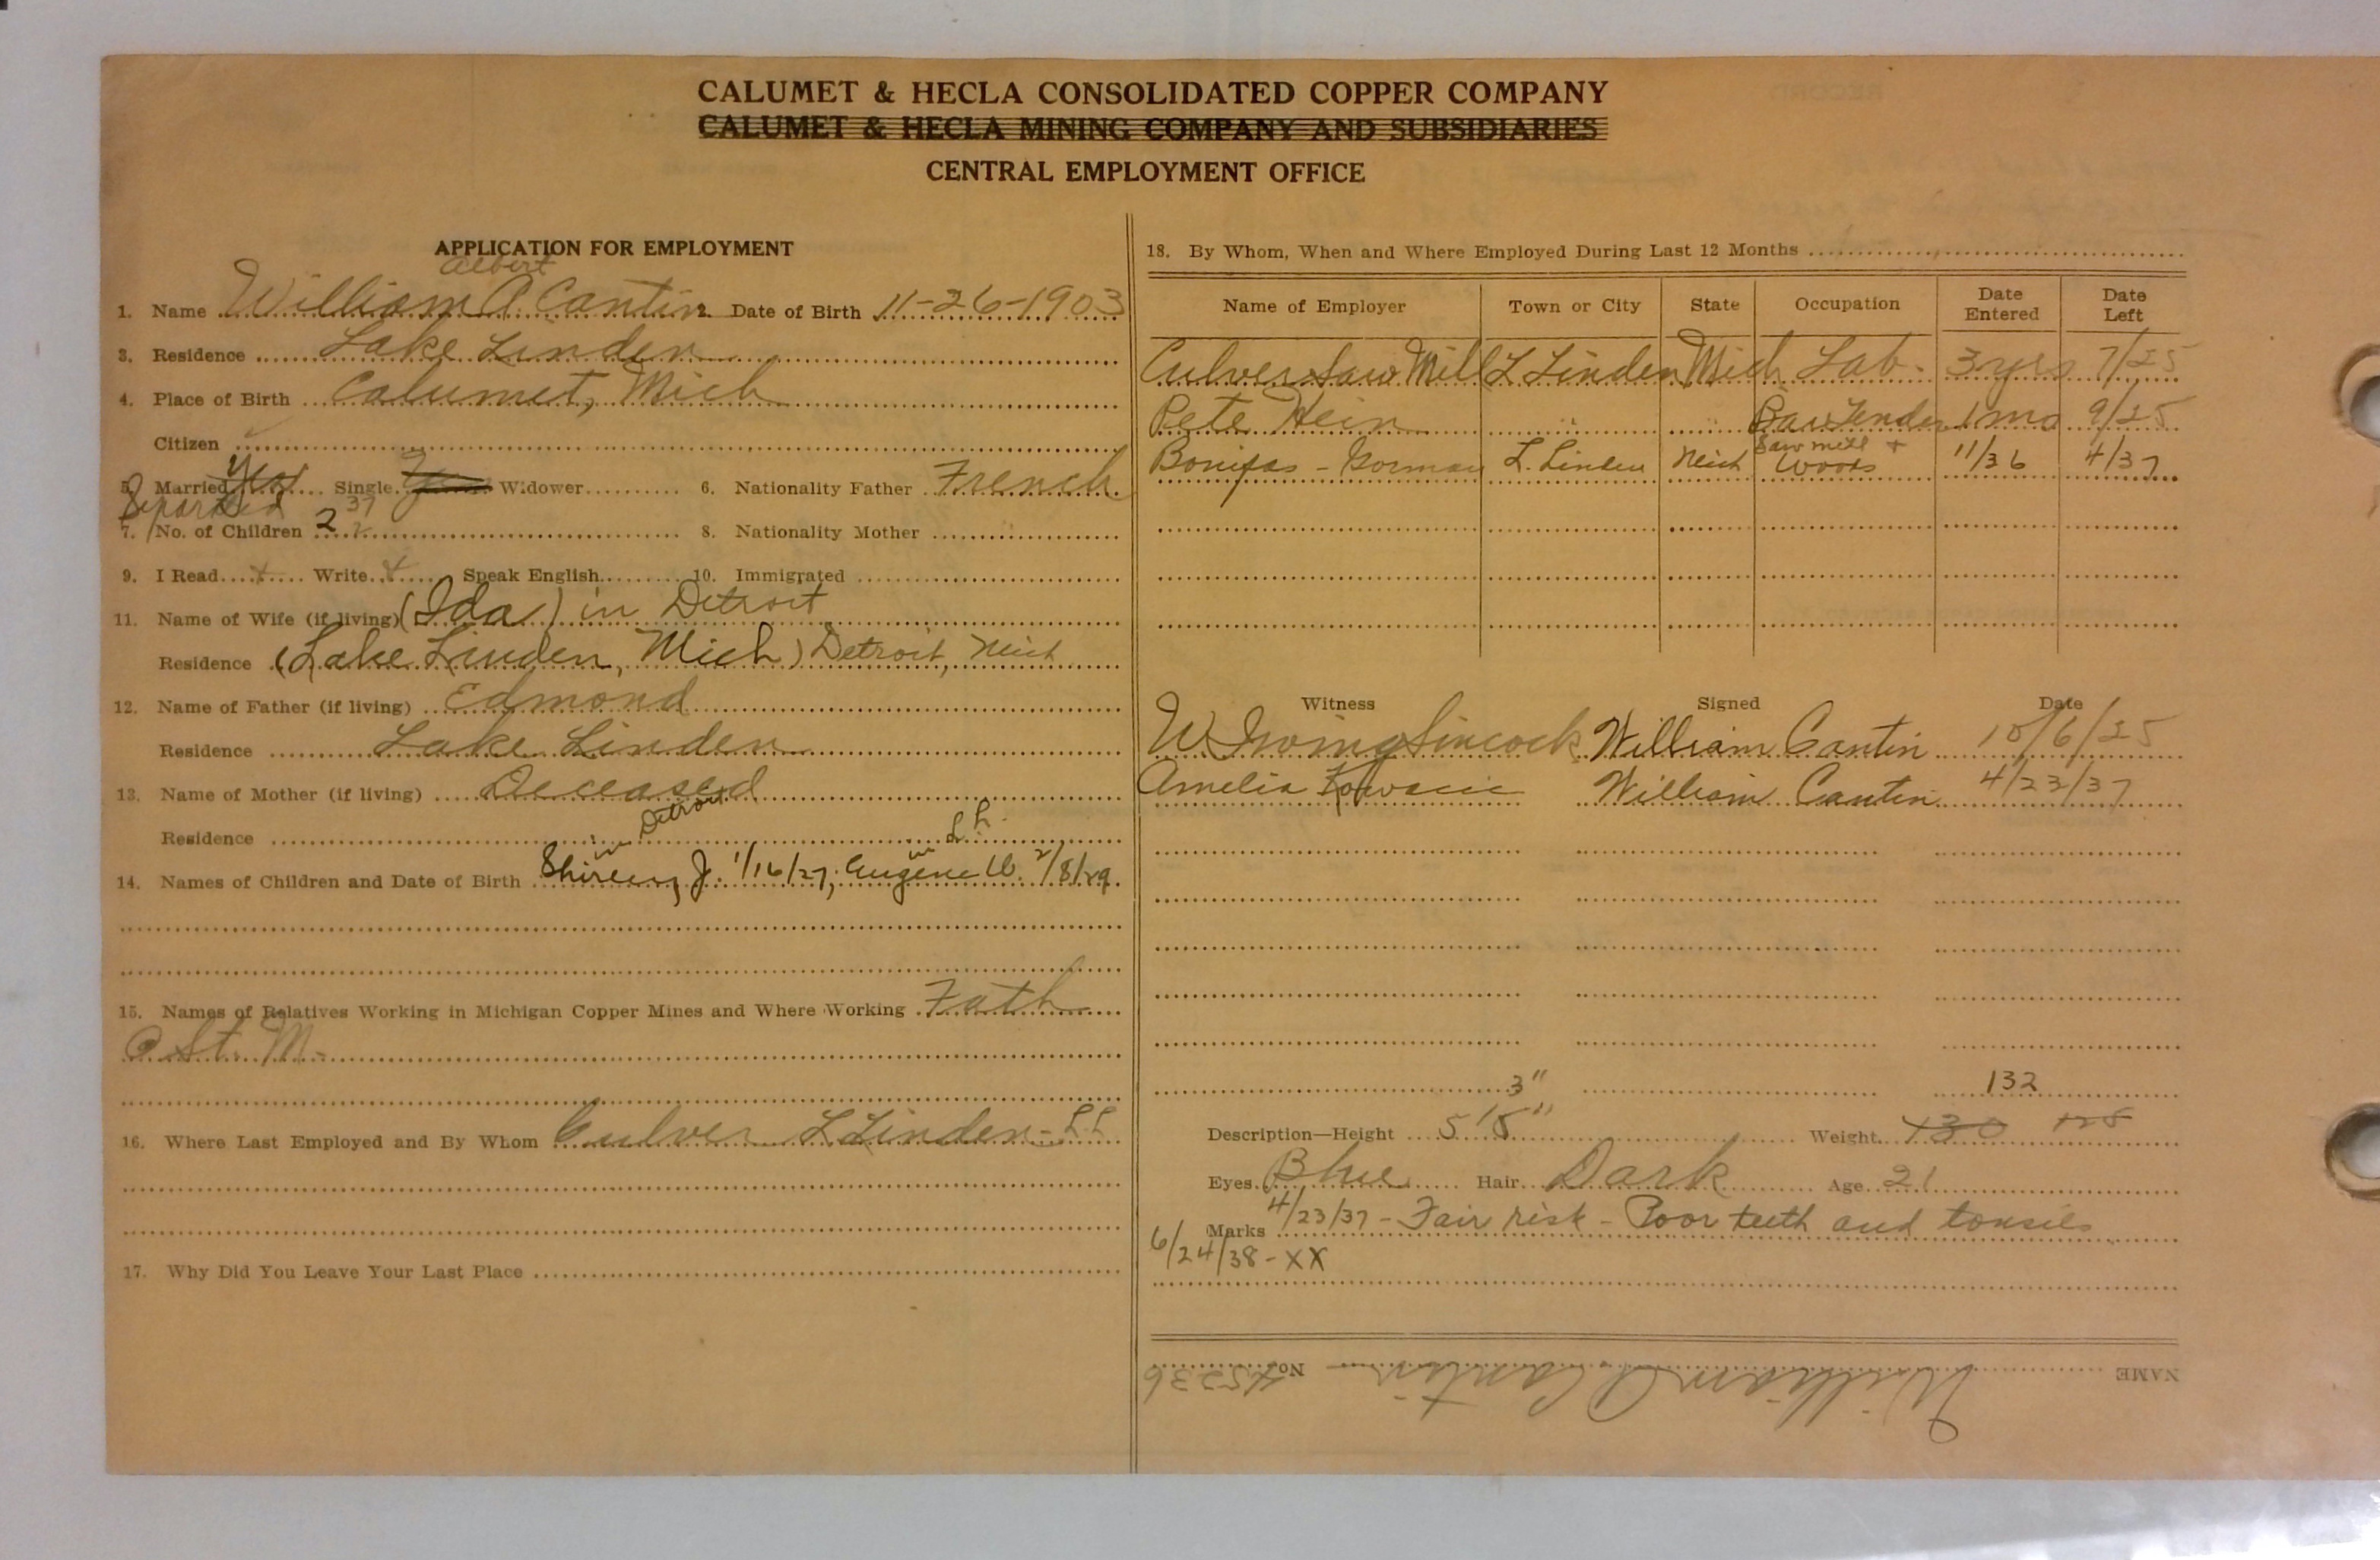 CALUMET & HECLA CONSOLIDATED COPPER COMPANY
CALUMET & HECLA MINING COMPANY AND SUBSIDIARIES
CENTRAL EMPLOYMENT OFFICE
APPLICATION FOR EMPLOYMENT
Albert
1. Name William A. Cantin 2. Date of Birth 11-26-1903
3. Residence Lake Linden
4. Place of Birth Calumet, Mich
Citizen
5. Married Yes Single Widower 6. Nationality Father French
Separated 37
7. No. of Children 2 8. Nationality Mother "
9. I Read x Write x Speak English 10. Immigrated
11. Name of Wife (if living) (Ida) in Detroit
Residence (Lake Linden, Mich) Detroit, Mich
12. Name of Father (if living) Edmond
Residence Lake Linden
13. Name of Mother (if living) Deceased
Residence
in Detroit in L L
14. Names of Children and Date of Birth J. 1/16/27, Eugene W. 2/8/29
15. Names of Relatives Working in Michigan Copper Mines and Where Working Fath
St. M.
16. Where Last Employed and By Whom Culver L Linden - LL
17. Why Did You Leave Your Last Place
18. By Whom, When and Where Employed During Last 12 Months
Name of Employer Town or City State Occupation Date Entered Date Left
Culver Saw Mill L Linden Mich Lab. 3 yrs 7/25
Pete Hein " " Bar Tender 1 mo 9/25
Bonifas - Gorman L. Linden Mich Saw mill + Woods 11/36 4/37
Witness Signed Date
W Irving Sincock William Cantin 10/6/25
Amelia William Cantin 4/23/37
3" 132
Description—Height 5' 5" Weight 130 128
Eyes Blue Hair Dark Age 21
Marks 4/23/37 - Fair risk - Poor teeth and tonsils
6/24/38 - XX
NAME William A. Cantin No. 45236